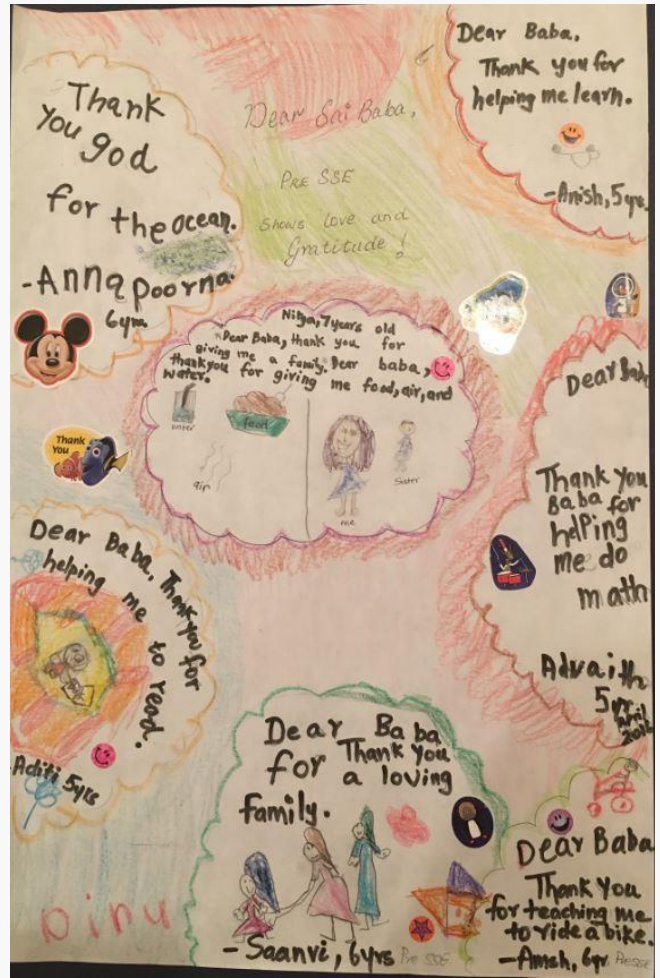 Dear Sai Baba,
PRE SSE
Shows love and
Gratitude !
Thank
you god
for the ocean.
-Annapoorna.
6yrs
Dear Baba,
Thank you for
helping me learn.
-Anish, 5yrs.
Nitya, 7years old
Dear Baba, thank you for
giving me a family. Dear baba,
thankyou for giving me food, air, and
water.
water
food
air
me
Sister
Thank
You
Dear Baba
Thank you
Baba for
helping
me do
math
Advaith
5yr
April
Dear Baba, Thank you for
helping me to read.
Aditi 5yrs
Dear Baba
Thank you
for a loving
family.
-Saanvi, 6yrs Pre SSE
Dear Baba
Thank You
for teaching me
to ride a bike.
-Amsh, 6yr PreSSE
Dinu